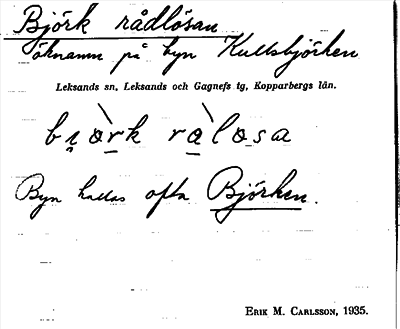 Björk rådlösan
öknamn på byn Kullsbjörken
Leksands sn, Leksands och Gagnefs tg, Kopparbergs län.
bıörk ralosa
Byn kallas ofta Björken.
ERIK M. CARLSSON, 1935.